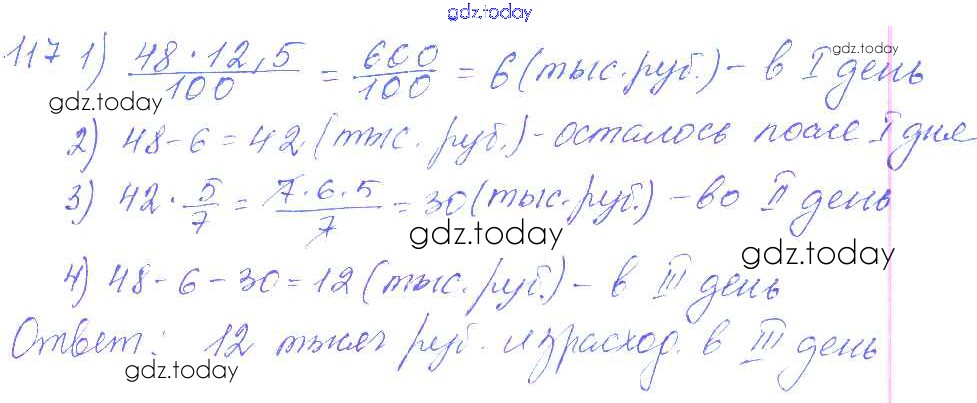 gdz.today
117 1) 48·12,5/100 = 600/100 = 6 (тыс. руб.) - в I день
gdz.today
gdz.today
2) 48-6=42 (тыс. руб.) - осталось после I дня
3) 42·5/7 = 7·6·5/7 = 30 (тыс. руб.) - во II день
gdz.today
gdz.today
4) 48-6-30=12 (тыс. руб.) - в III день
Ответ: 12 тысяч руб. израсход. в III день
gdz.today